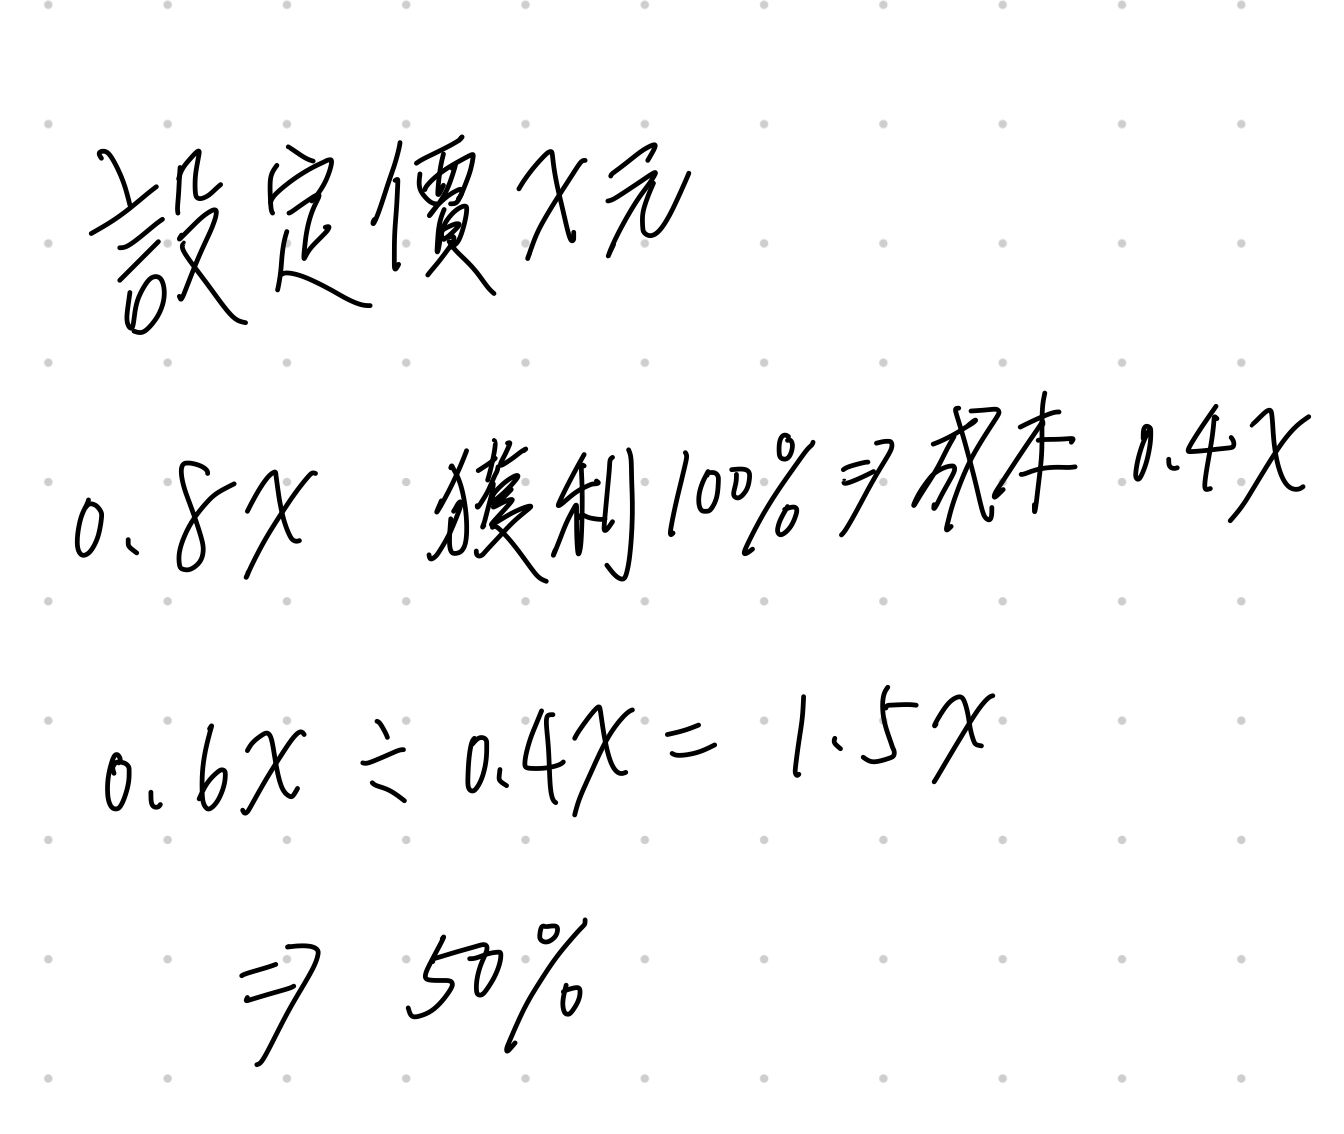 設定價x元
0.8x 獲利100%⇒成本 0.4x
0.6x÷0.4x=1.5x
⇒ 50%